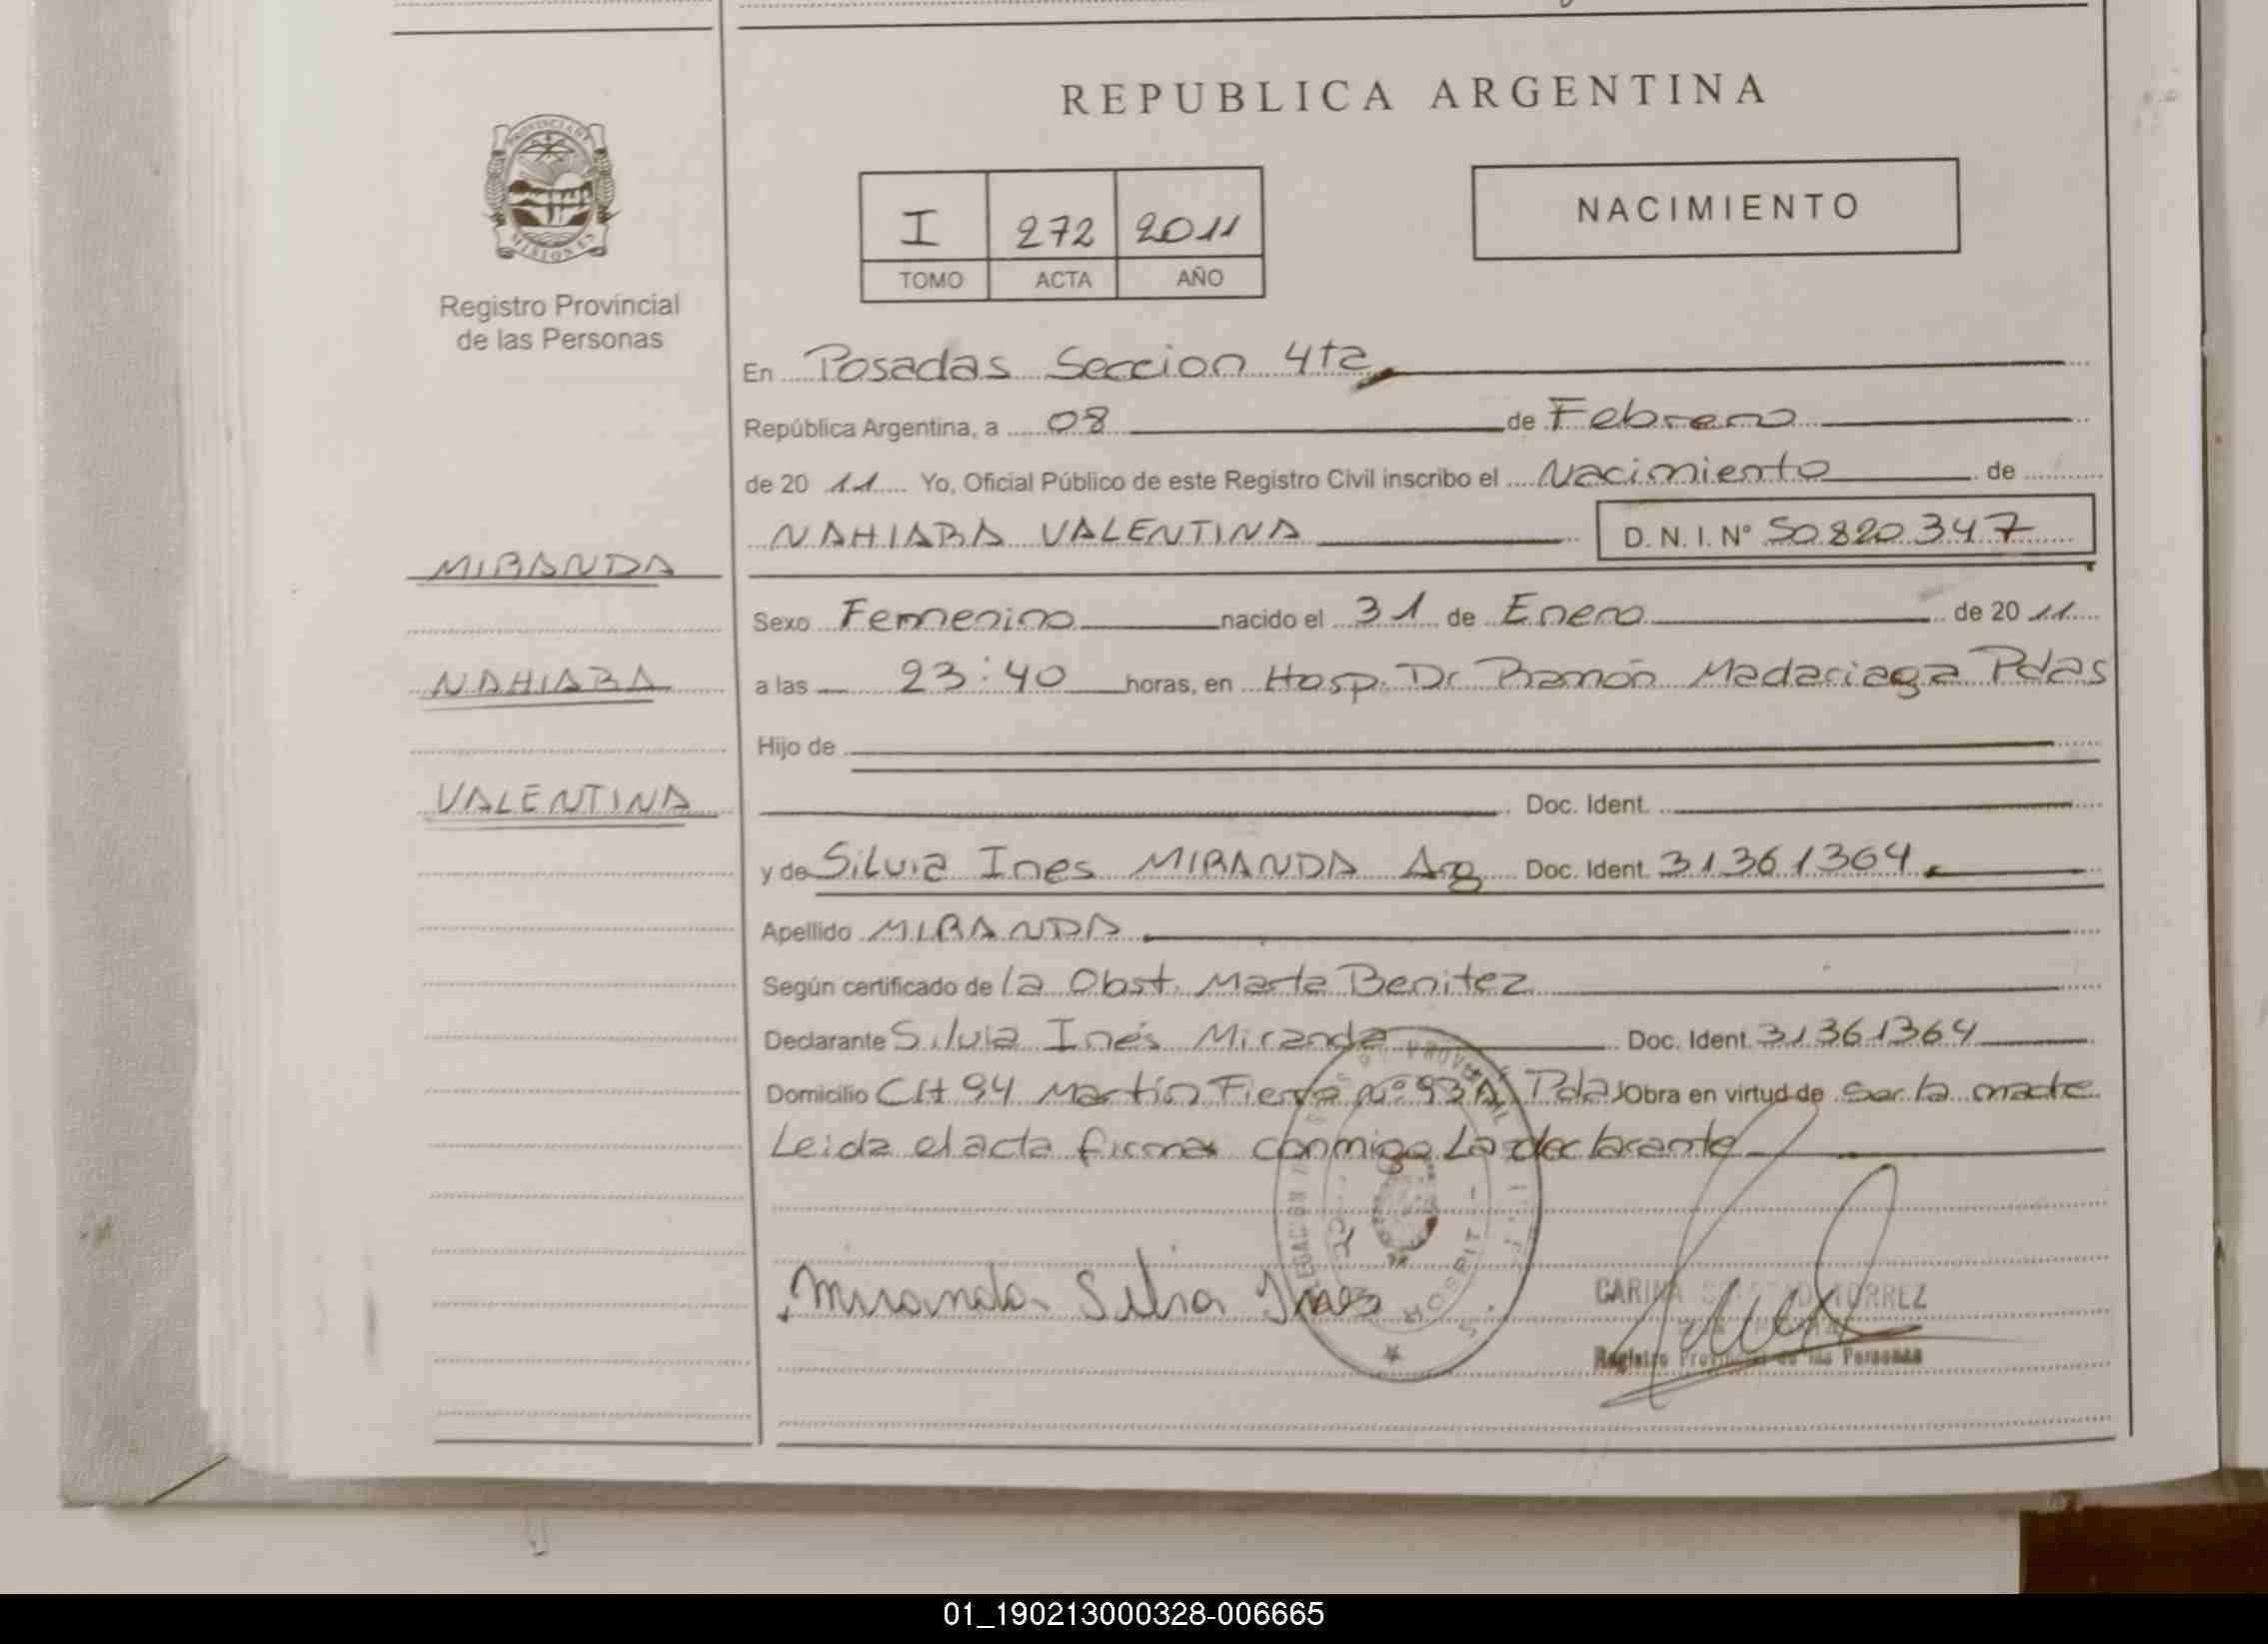 REPUBLICA ARGENTINA
PROVINCIA DE
MISIONES
Registro Provincial
de las Personas
I 272 2011
TOMO ACTA AÑO
NACIMIENTO
En Posadas Seccion 4ta
República Argentina, a 08 de Febrero
de 20 11 Yo, Oficial Público de este Registro Civil inscribo el Nacimiento de
NAHIARA VALENTINA D. N. I. Nº 50.820.347
MIRANDA
NAHIARA
VALENTINA
Sexo Femenino nacido el 31 de Enero de 20 11
a las 23:40 horas, en Hosp. Dr Ramón Madariaga Pdas
Hijo de
Doc. Ident.
y de Silvia Ines MIRANDA Arg Doc. Ident. 31361364
Apellido MIRANDA
Según certificado de la Obst. Marta Benitez
Declarante Silvia Inés Miranda Doc. Ident. 31361364
Domicilio CH 94 Martín Fierro Nº 93 Pdas Obra en virtud de ser la madre
Leida el acta firma conmigo La declarante
Miranda Silvia Ines
HOSPIT
CARINA TORREZ
Registro Provincial de las Personas
01_190213000328-006665